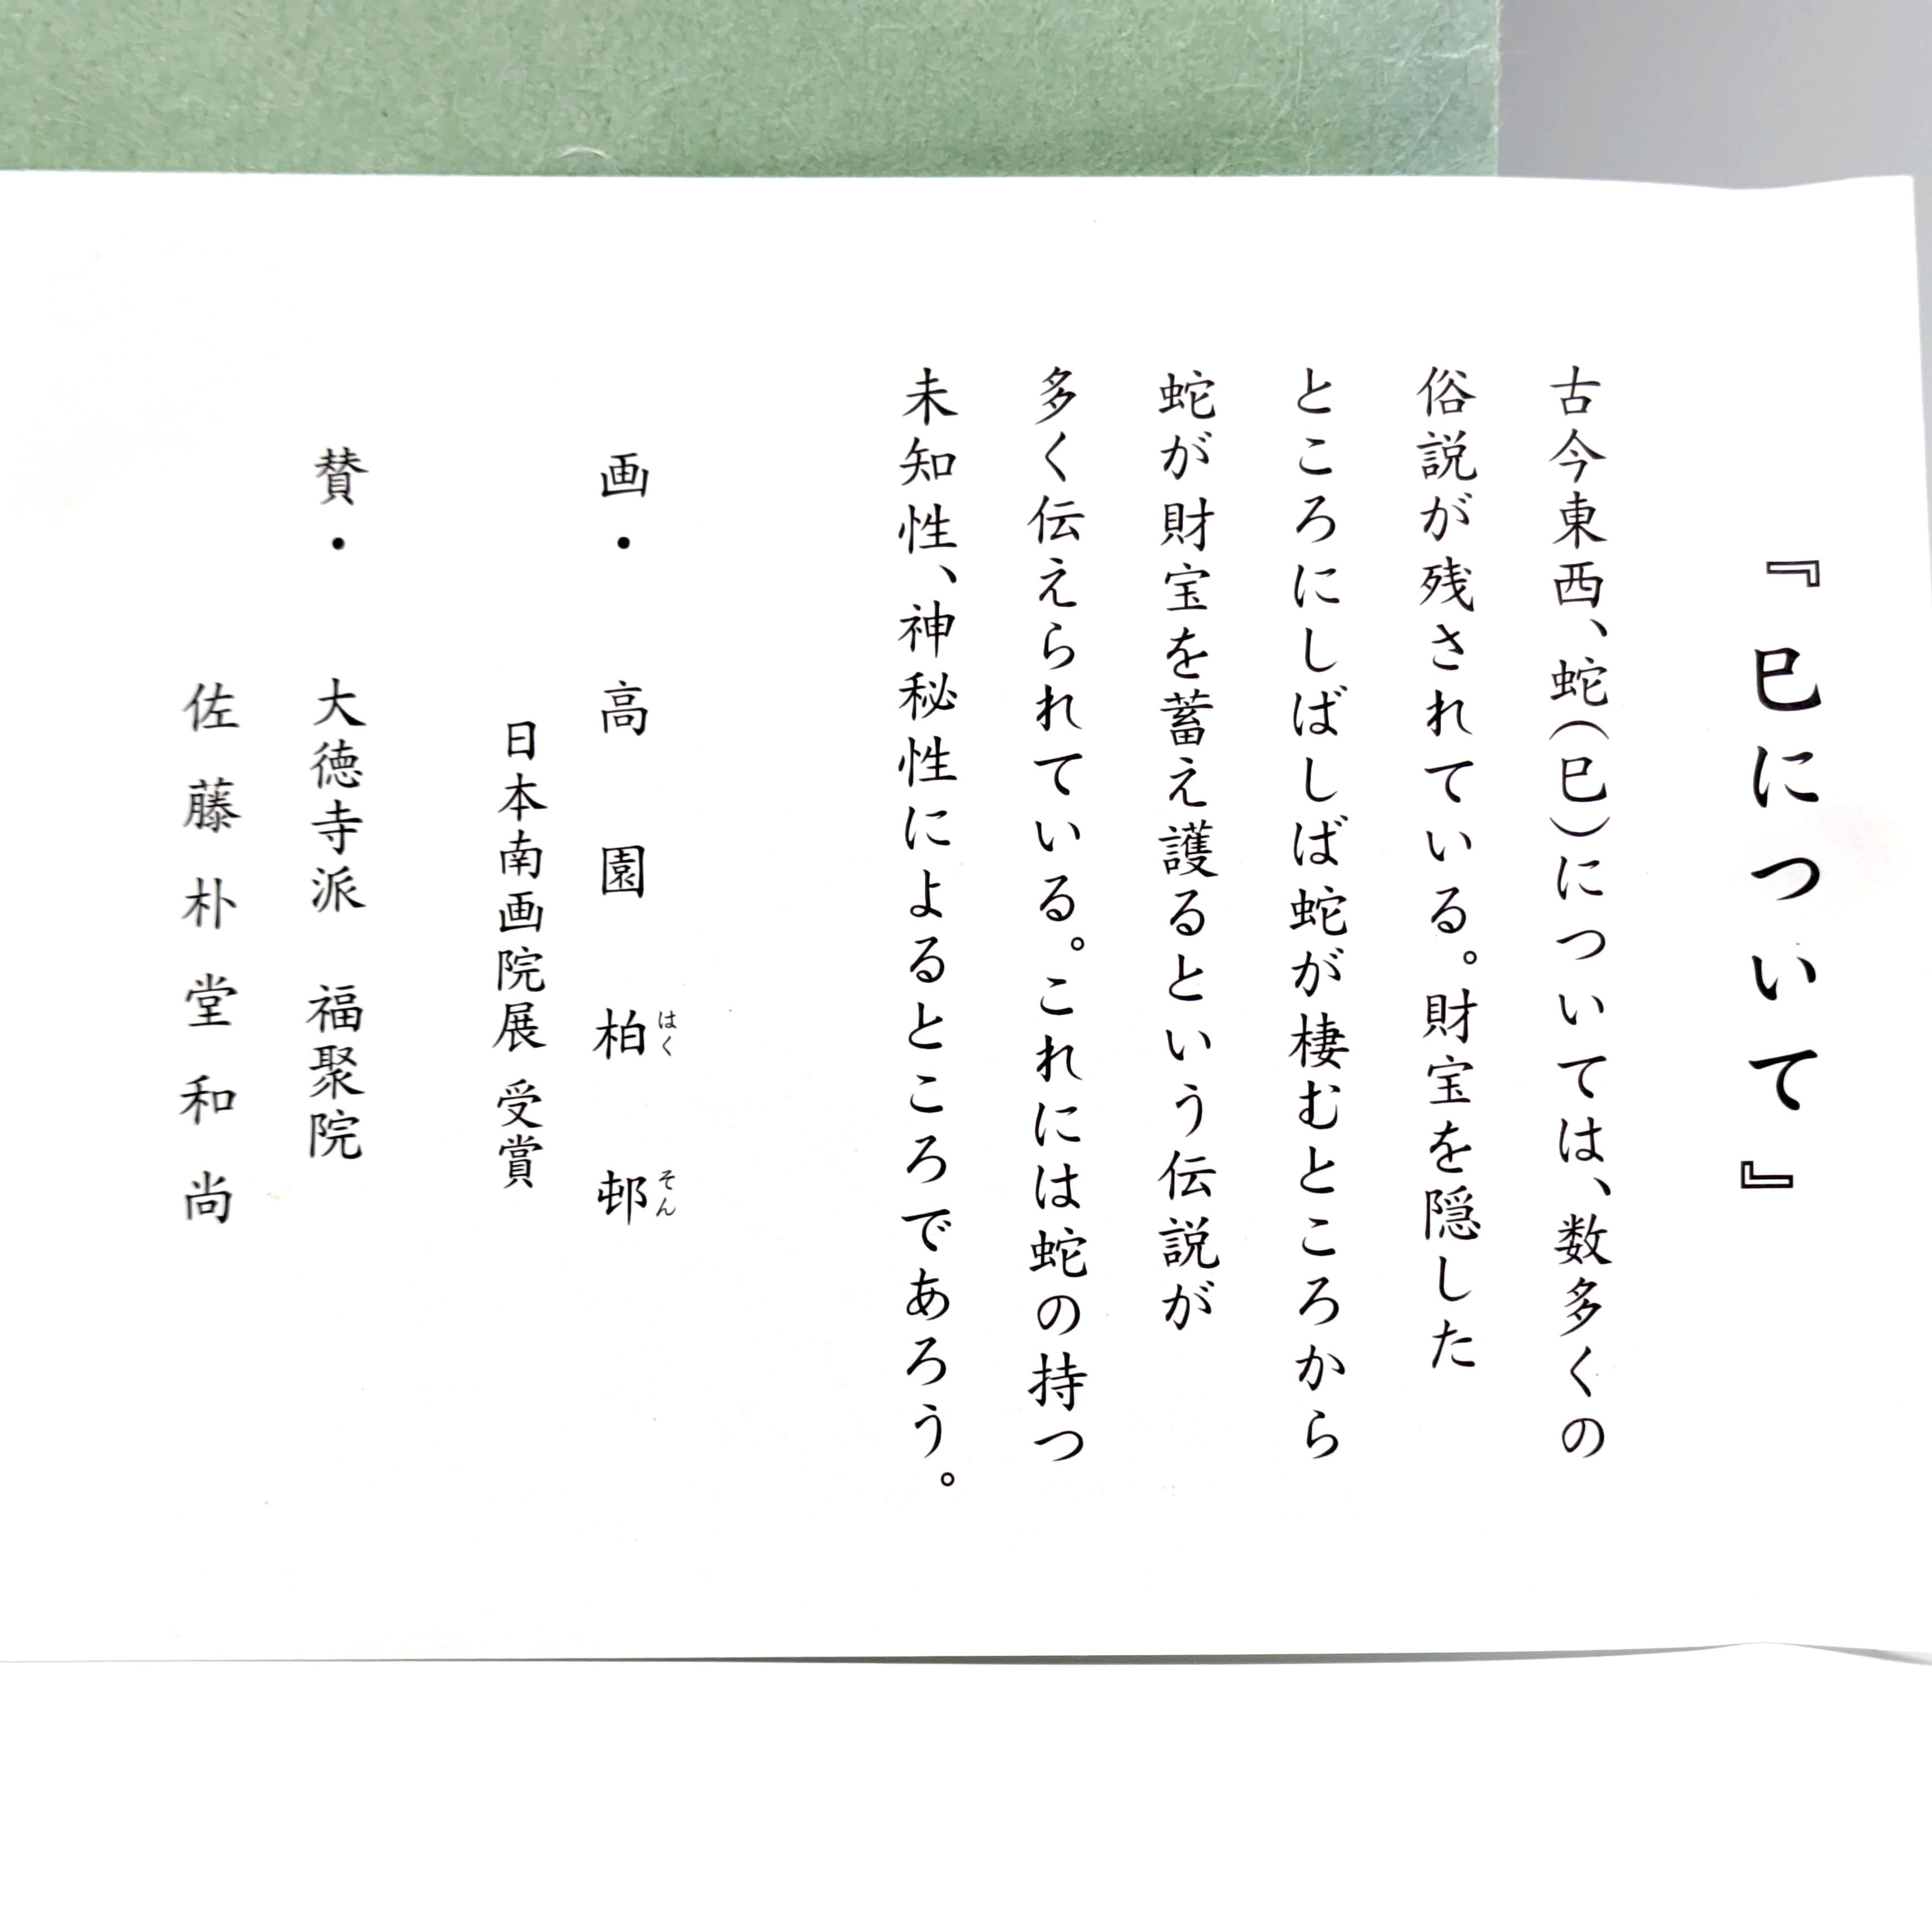 『巳について』
古今東西、蛇(巳)については、数多くの
俗説が残されている。財宝を隠した
ところにしばしば蛇が棲むところから
蛇が財宝を蓄え護るという伝説が
多く伝えられている。これには蛇の持つ
未知性、神秘性によるところであろう。
画・ 高園柏邨
はく そん
日本南画院展 受賞
賛・ 大徳寺派 福聚院
佐藤朴堂和尚